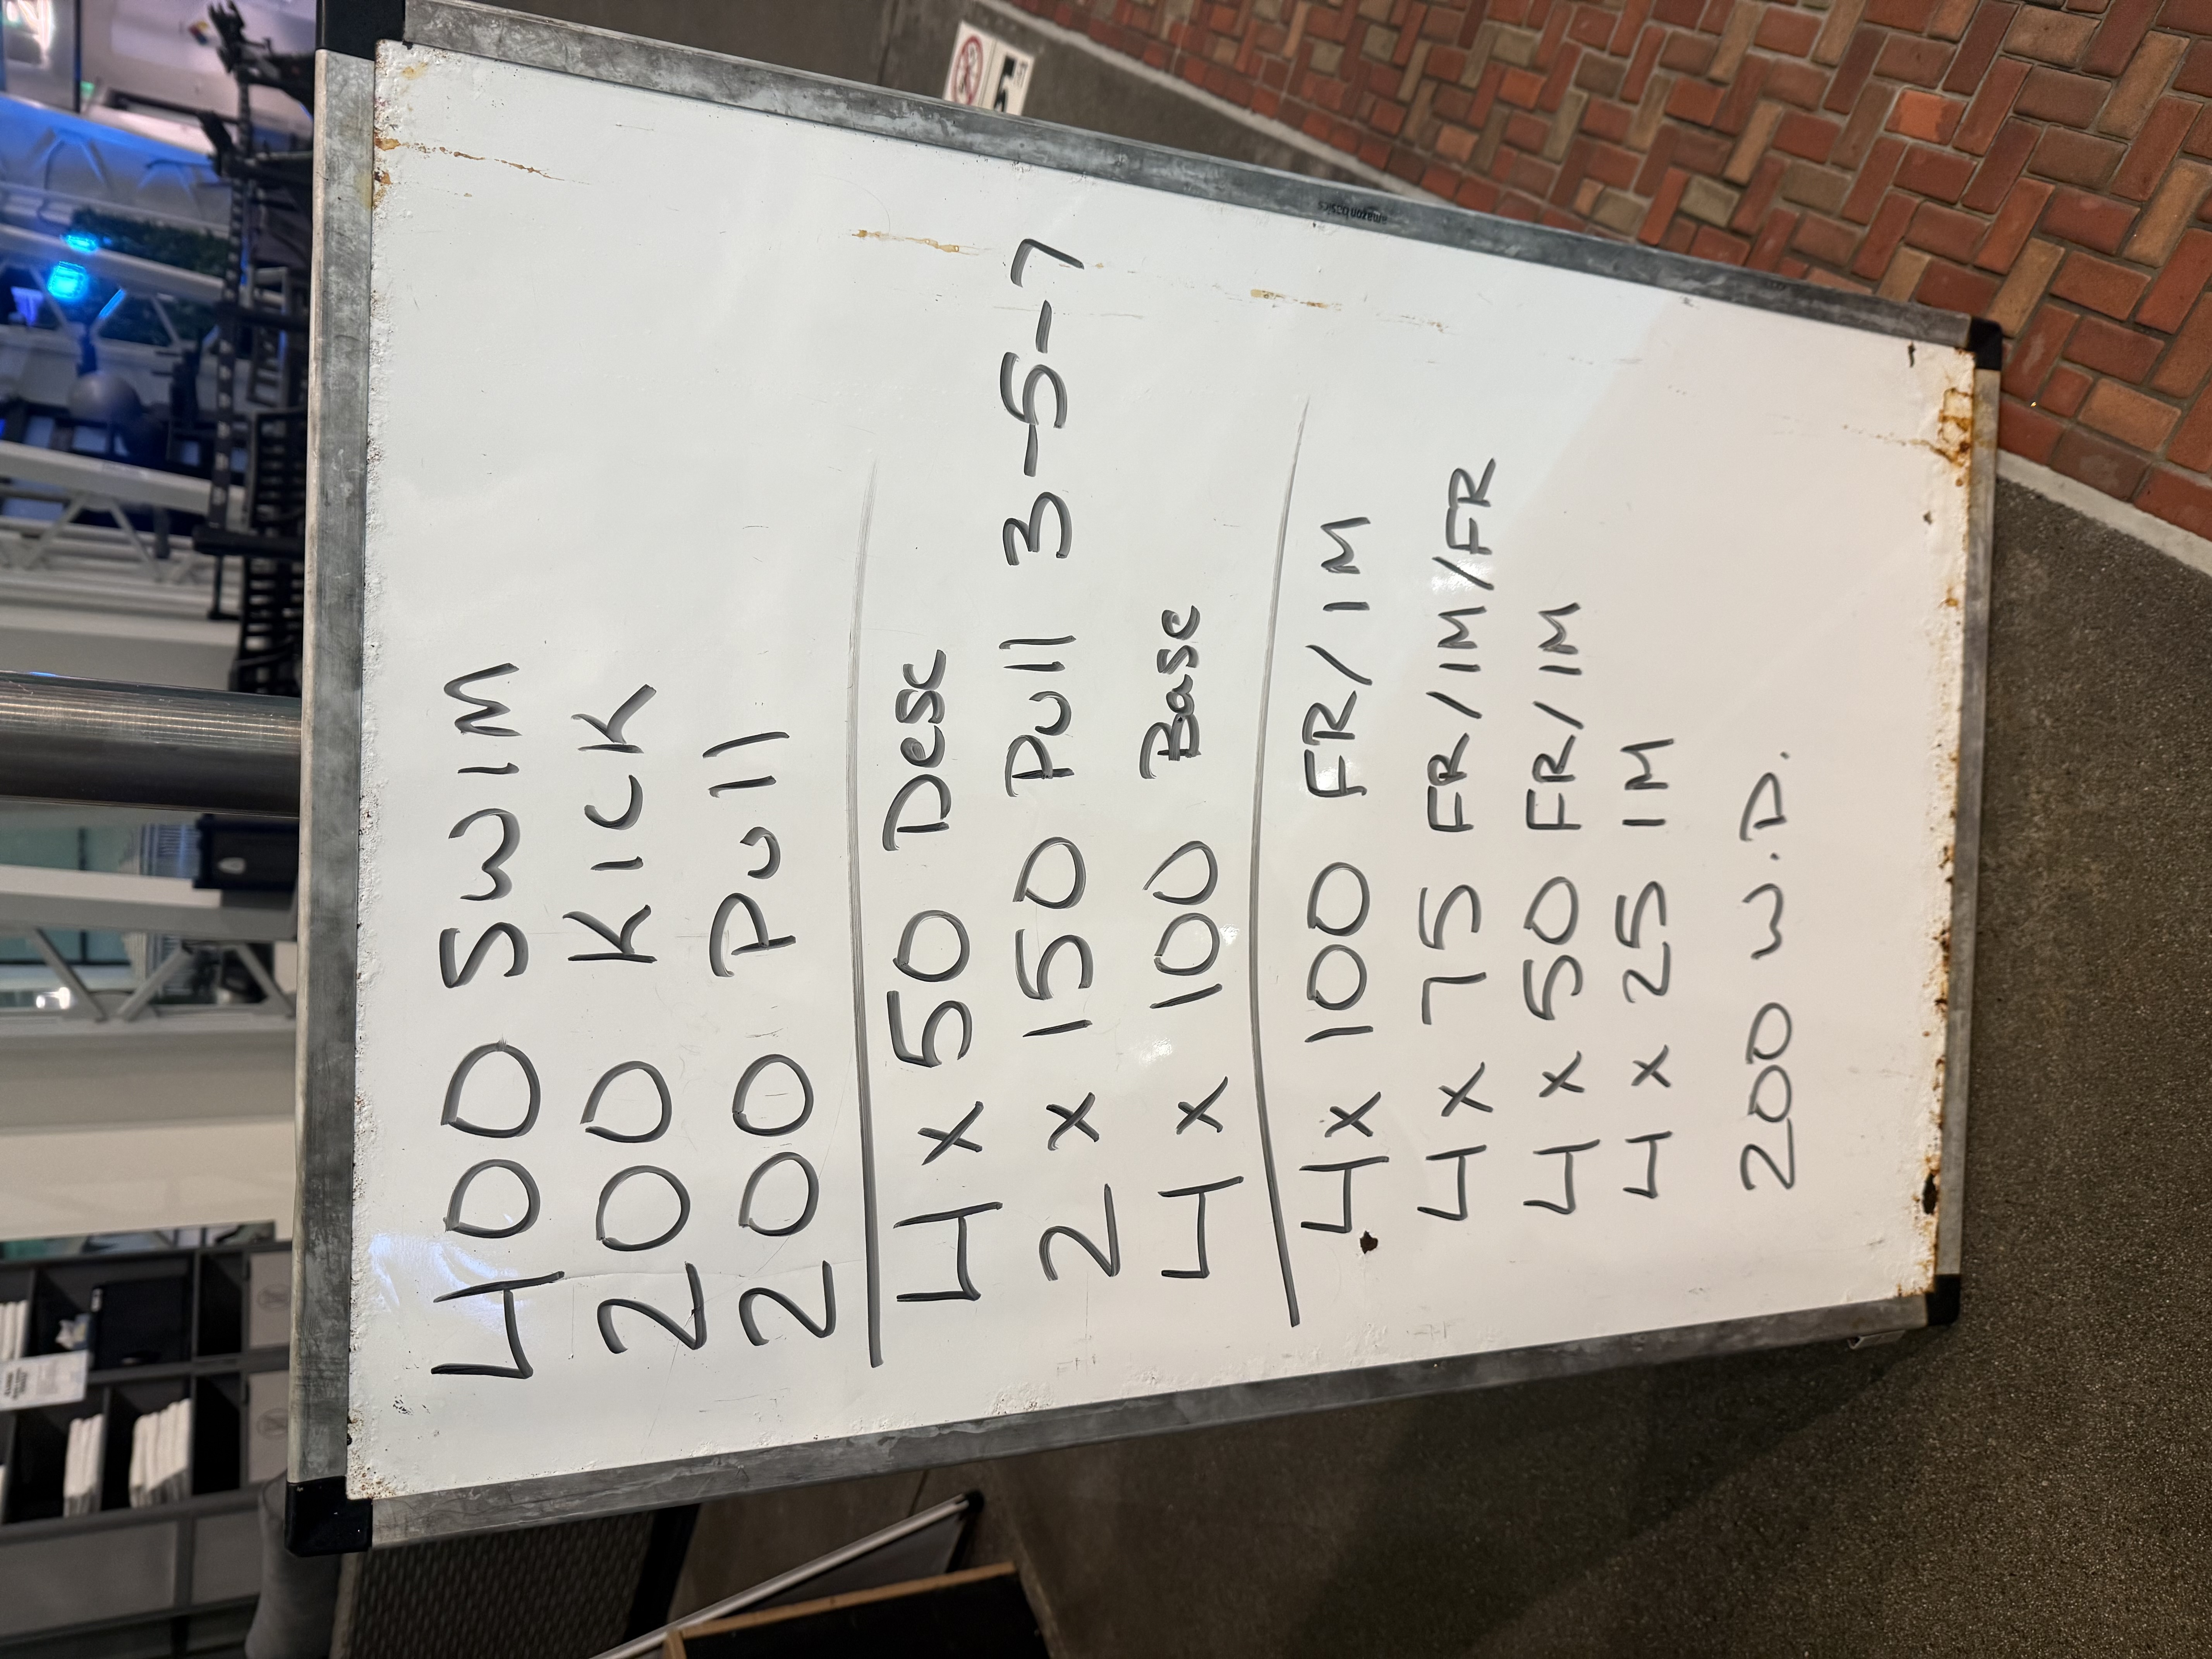 400 SWIM
200 KICK
200 Pull
4 x 50 Desc
2 x 150 Pull 3-5-7
4 x 100 Base
4 x 100 FR/IM
4 x 75 FR/IM/FR
4 x 50 FR/IM
4 x 25 IM
200 W.D.
amazon basics